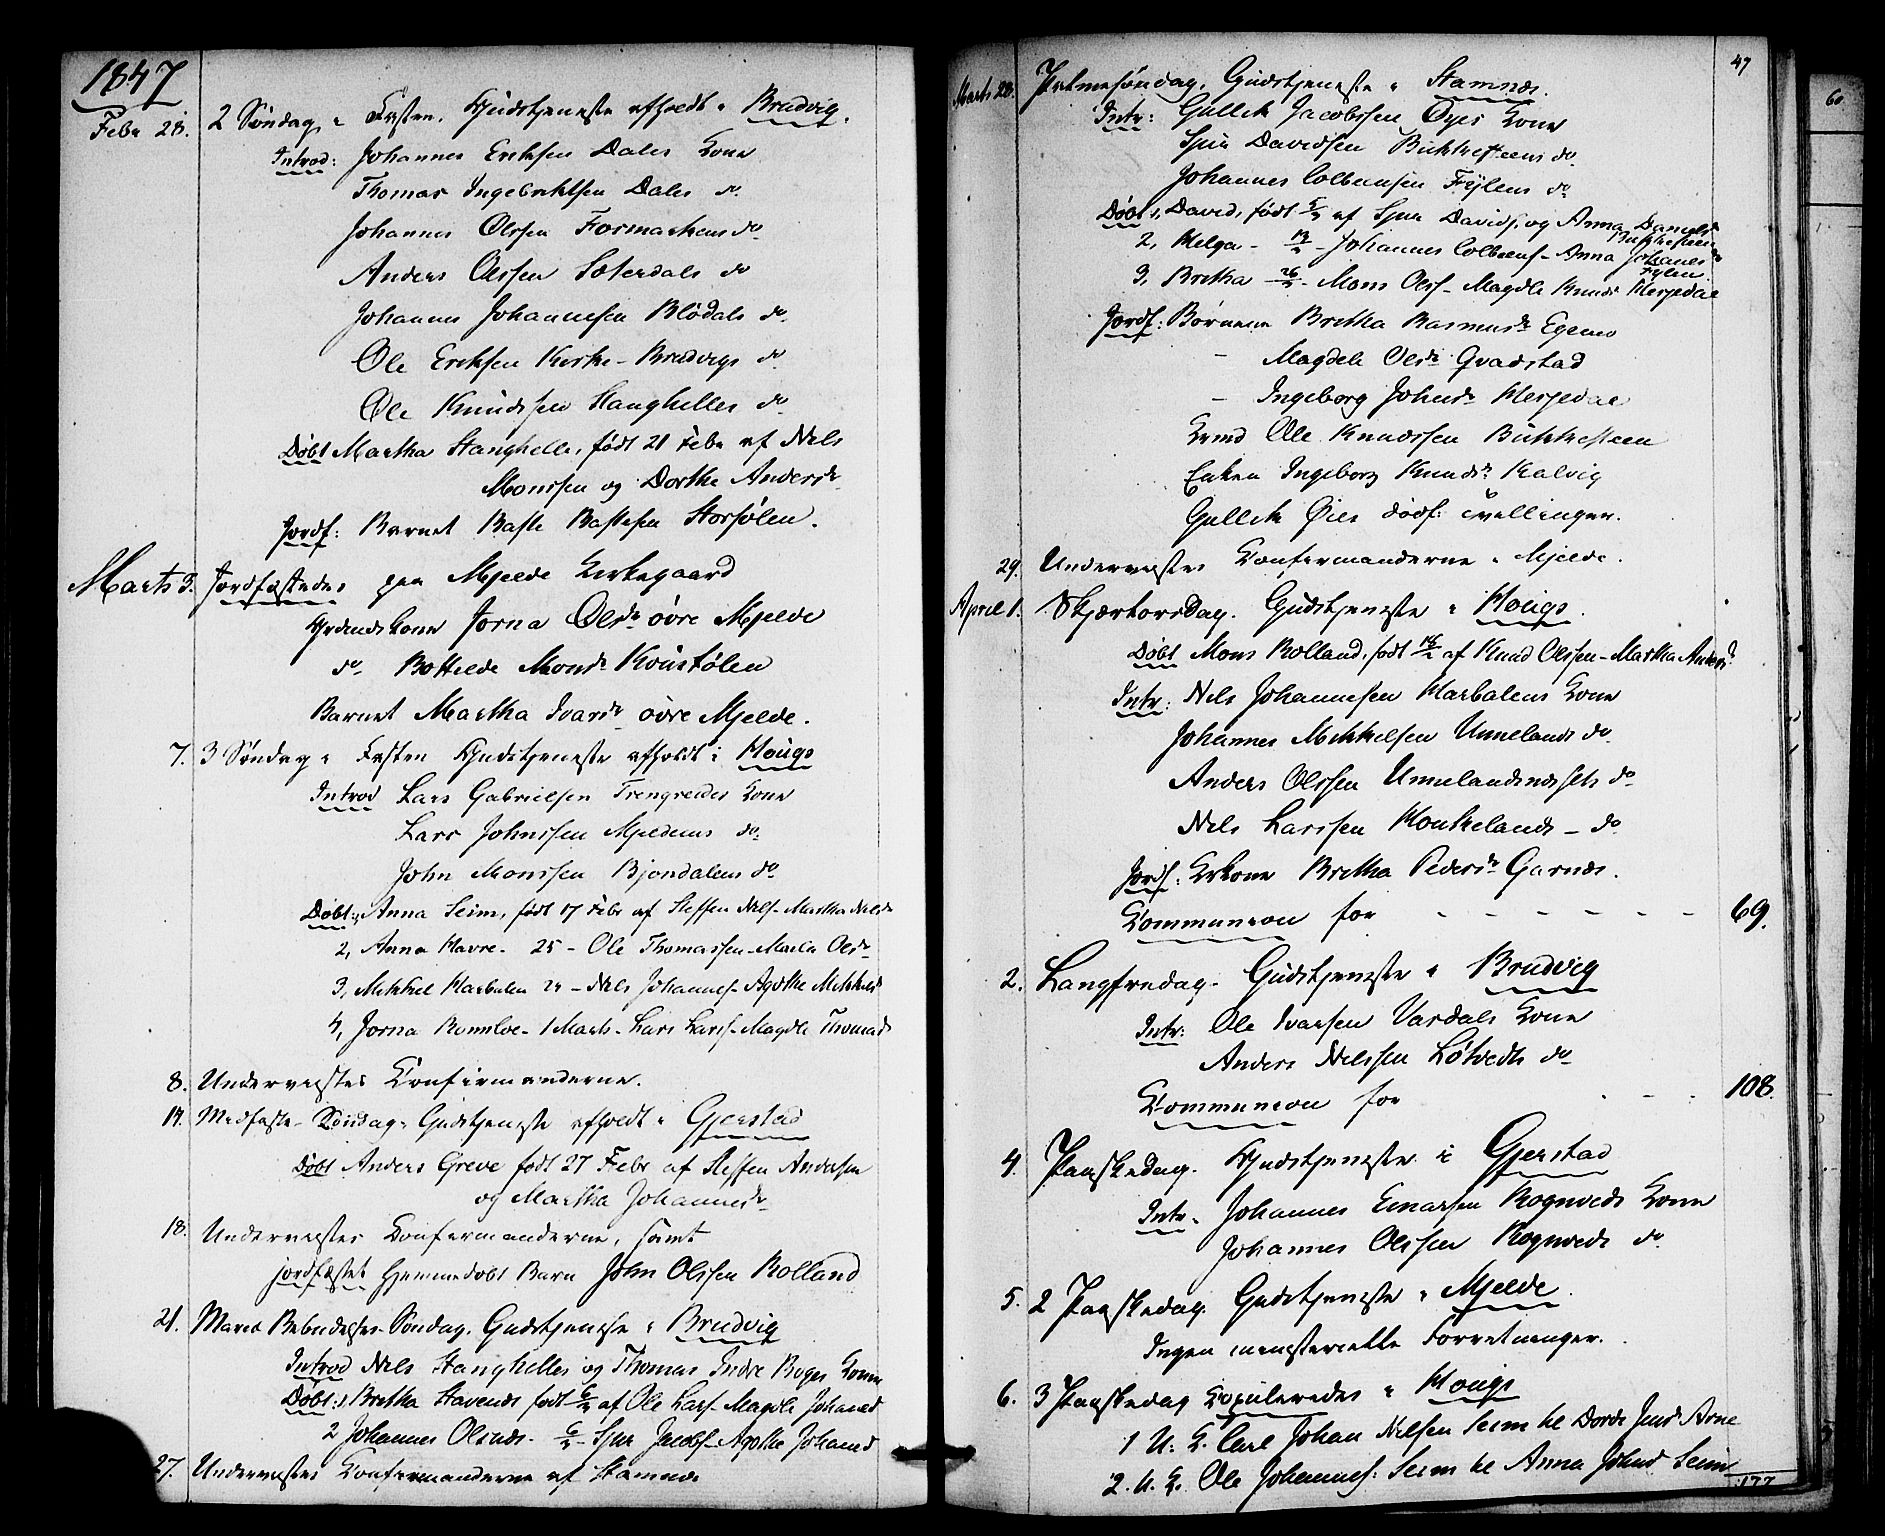 1847
Febr 28. 2 Søndag i Fasten. Gudstjeneste afholdt i Brudvig.
Introd: Johannes Eriksen Dales Kone
Thomas Ingebriktsen Dales do
Johannes Olssen Fosmarkens do
Anders Olssen Sæterdals do
Johannes Johannesen Blødals do.
Ole Eriksen Kirke-Brudvigs do.
Ole Knudssen Stanghelles do
Døbt Martha Stanghelle, født 21 Febr af Nels
Monssen og Dorthe Andersdr
Jordf: Barnet Baste Bastesen Storsølen.
Marts 3. Jordfæstedes paa Mjelde Kirkegaard
Kone Jorna Olsdr øvre Mjelde
do Bottilde Monsdr Koustølen
Barnet Martha Ivarsdr øvre Mjelde.
7. 3 Søndag i Fasten Gudstjeneste afholdt i Hougs
Introd Lars Gabrielsen Trengreides Kone
Lars Johnssen Mjeldems do.
John Monssen Bjondalens do
Døbt: 1, Anna Seim, født 17 Febr af Steffen Nelss- Martha Nelsdr
2, Anna Havre- 25 - Ole Thomassen- Marta Olsdr
3, Mikkel Harbalen 24 - Nels Johannes- Agothe Mikkelsd
4, Jorna Romsloe- 1 Marts- Lars Larss- Magdle Thomasd
8. Underviistes Confirmanderne.
14. Midfaste-Søndag. Gudstjeneste afholdt i Gjerstad
Døbt Anders Greve født 27 Febr af Steffen Andersen
og Martha Johannesdr
18. Underviistes Confirmanderne, samt
jordfæstet hjemmedøbt Barn John Olssen Rolland
21. Mariæ Bebudelses-Søndag. Gudstjeneste i Brudvig
Introd Nels Stanghelles og Thomas Indre Boges Koner
Døbt: 1, Bretha Stavenes født 6/2 af Ole Larss- Magdle Johannesd
2 Johannes Olsnes. 6/2 - Sjur Jacobs- Agothe Johannesd
27. Underviistes Confirmanderne af Stamnæs
47
Marts 28. Palmesøndag. Gudstjeneste i Stamnæs.
Intr: Gullik Jacobssen Øyes Kone
Sjur Davidsen Bukkesteens do.
Johannes Colbensen Fyllens do
Døbt 1, David, født 5/2 af Sjur Davids. og Anna Danielsdr Bukkesteen
2, Helga - 19/2 - Johannes Colbens- Anna Johanesdr Fylen
3, Bretha 26/2 - Mons Olss- Magdle Knudsdr Hesjedal
Jordf: Børnene Bretha Rasmusdr Egemo
- Magdele Olsdr Qvadstad
- Ingeborg Johnsdr Hesjedal
Ole Knudssen Bukkesteen
Enken Ingeborg Knudsdr Kalvig
Gullik Øies dødf: tvillinger.
29. Underviistes Confirmanderne i Mjelde.
April 1. Skjærtorsdag. Gudstjeneste i Hougs.
Døbt Mons Rolland, født 14/2 af Knud Olssen- Martha Andersdr
Intr: Nels Johannesen Harbalens Kone
Johannes Mikkelsen Unnelands do.
Anders Olssen Unnelandsnæssets do.
Nels Larssen Houkelands - do.
Jordf: Kone Bretha Pedersdr Garnæs.
Communion for - - - - - - 69.
2. Langfredag. Gudstjeneste i Brudvig
Intr: Ole Ivarsen Vardals Kone
Anders Nelssen Løtvedts do
Communion for - - 108.
4. Paaskedag. Gudstjeneste i Gjerstad
Intr. Johannes Einarsen Rognveds Kone
Johannes Olssen Rognveds do.
5. 2 Paaskedag. Gudstjeneste i Mjelde.
Ingen ministerielle Forretninger.
6. 3 Paaskedag Copuleredes i Hougs
1 U: K. Carl Johan Nelsen Seim til Dorde Jensdr Arne
2. U. K. Ole Johannes: Seim til Anna Johnsd Seim
177
60